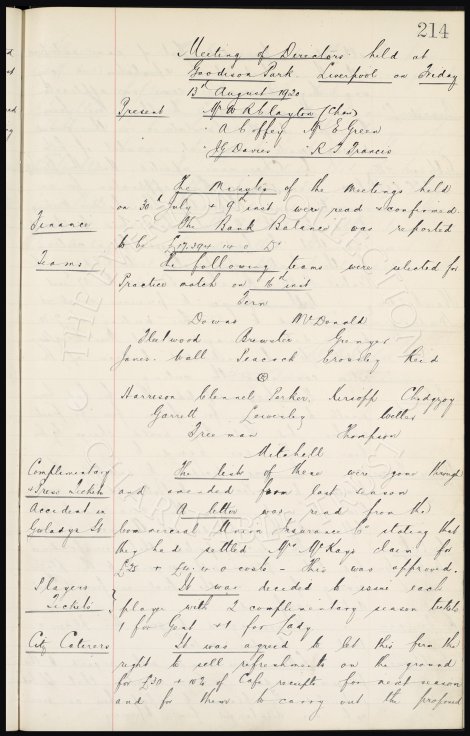 214
Meeting of Directors held at
Goodison Park Liverpool on Friday
13th August 1920
Present Mr W R Clayton (Chair)
" A Coffey Mr E Green
" J G Davies " R T Francis
The Minutes of the Meetings held
on 30th July & 9th inst were read & confirmed.
Finance The Bank Balance was reported
to be £17,394 14 0 Dr
Teams The following teams were selected for
Practice match on 16th inst
Fern
Downs McDonald
Fleetwood Brewster Grenyer
Jones Wall Peacock Crossley Reid
Harrison Clennel Parker Kirsopp Chedgzoy
Garrett Leivesley Weller
Freeman Thompson
Mitchell
Complimentary The lists of these were gone through
& Press Tickets and amended from last season
Accident in A letter was read from the
Gwladys St Commercial Union Insurance Co stating that
they had settled Mrs McKay's claim for
£25 + costs - This was approved.
Players It was decided to issue each
Tickets player with 2 complimentary season tickets
1 for Gent & 1 for Lady
City Caterers It was agreed to let this firm the
right to sell refreshments on the ground
for £30 + 10% of Cafe receipts for next season
and for them to carry out the proposed